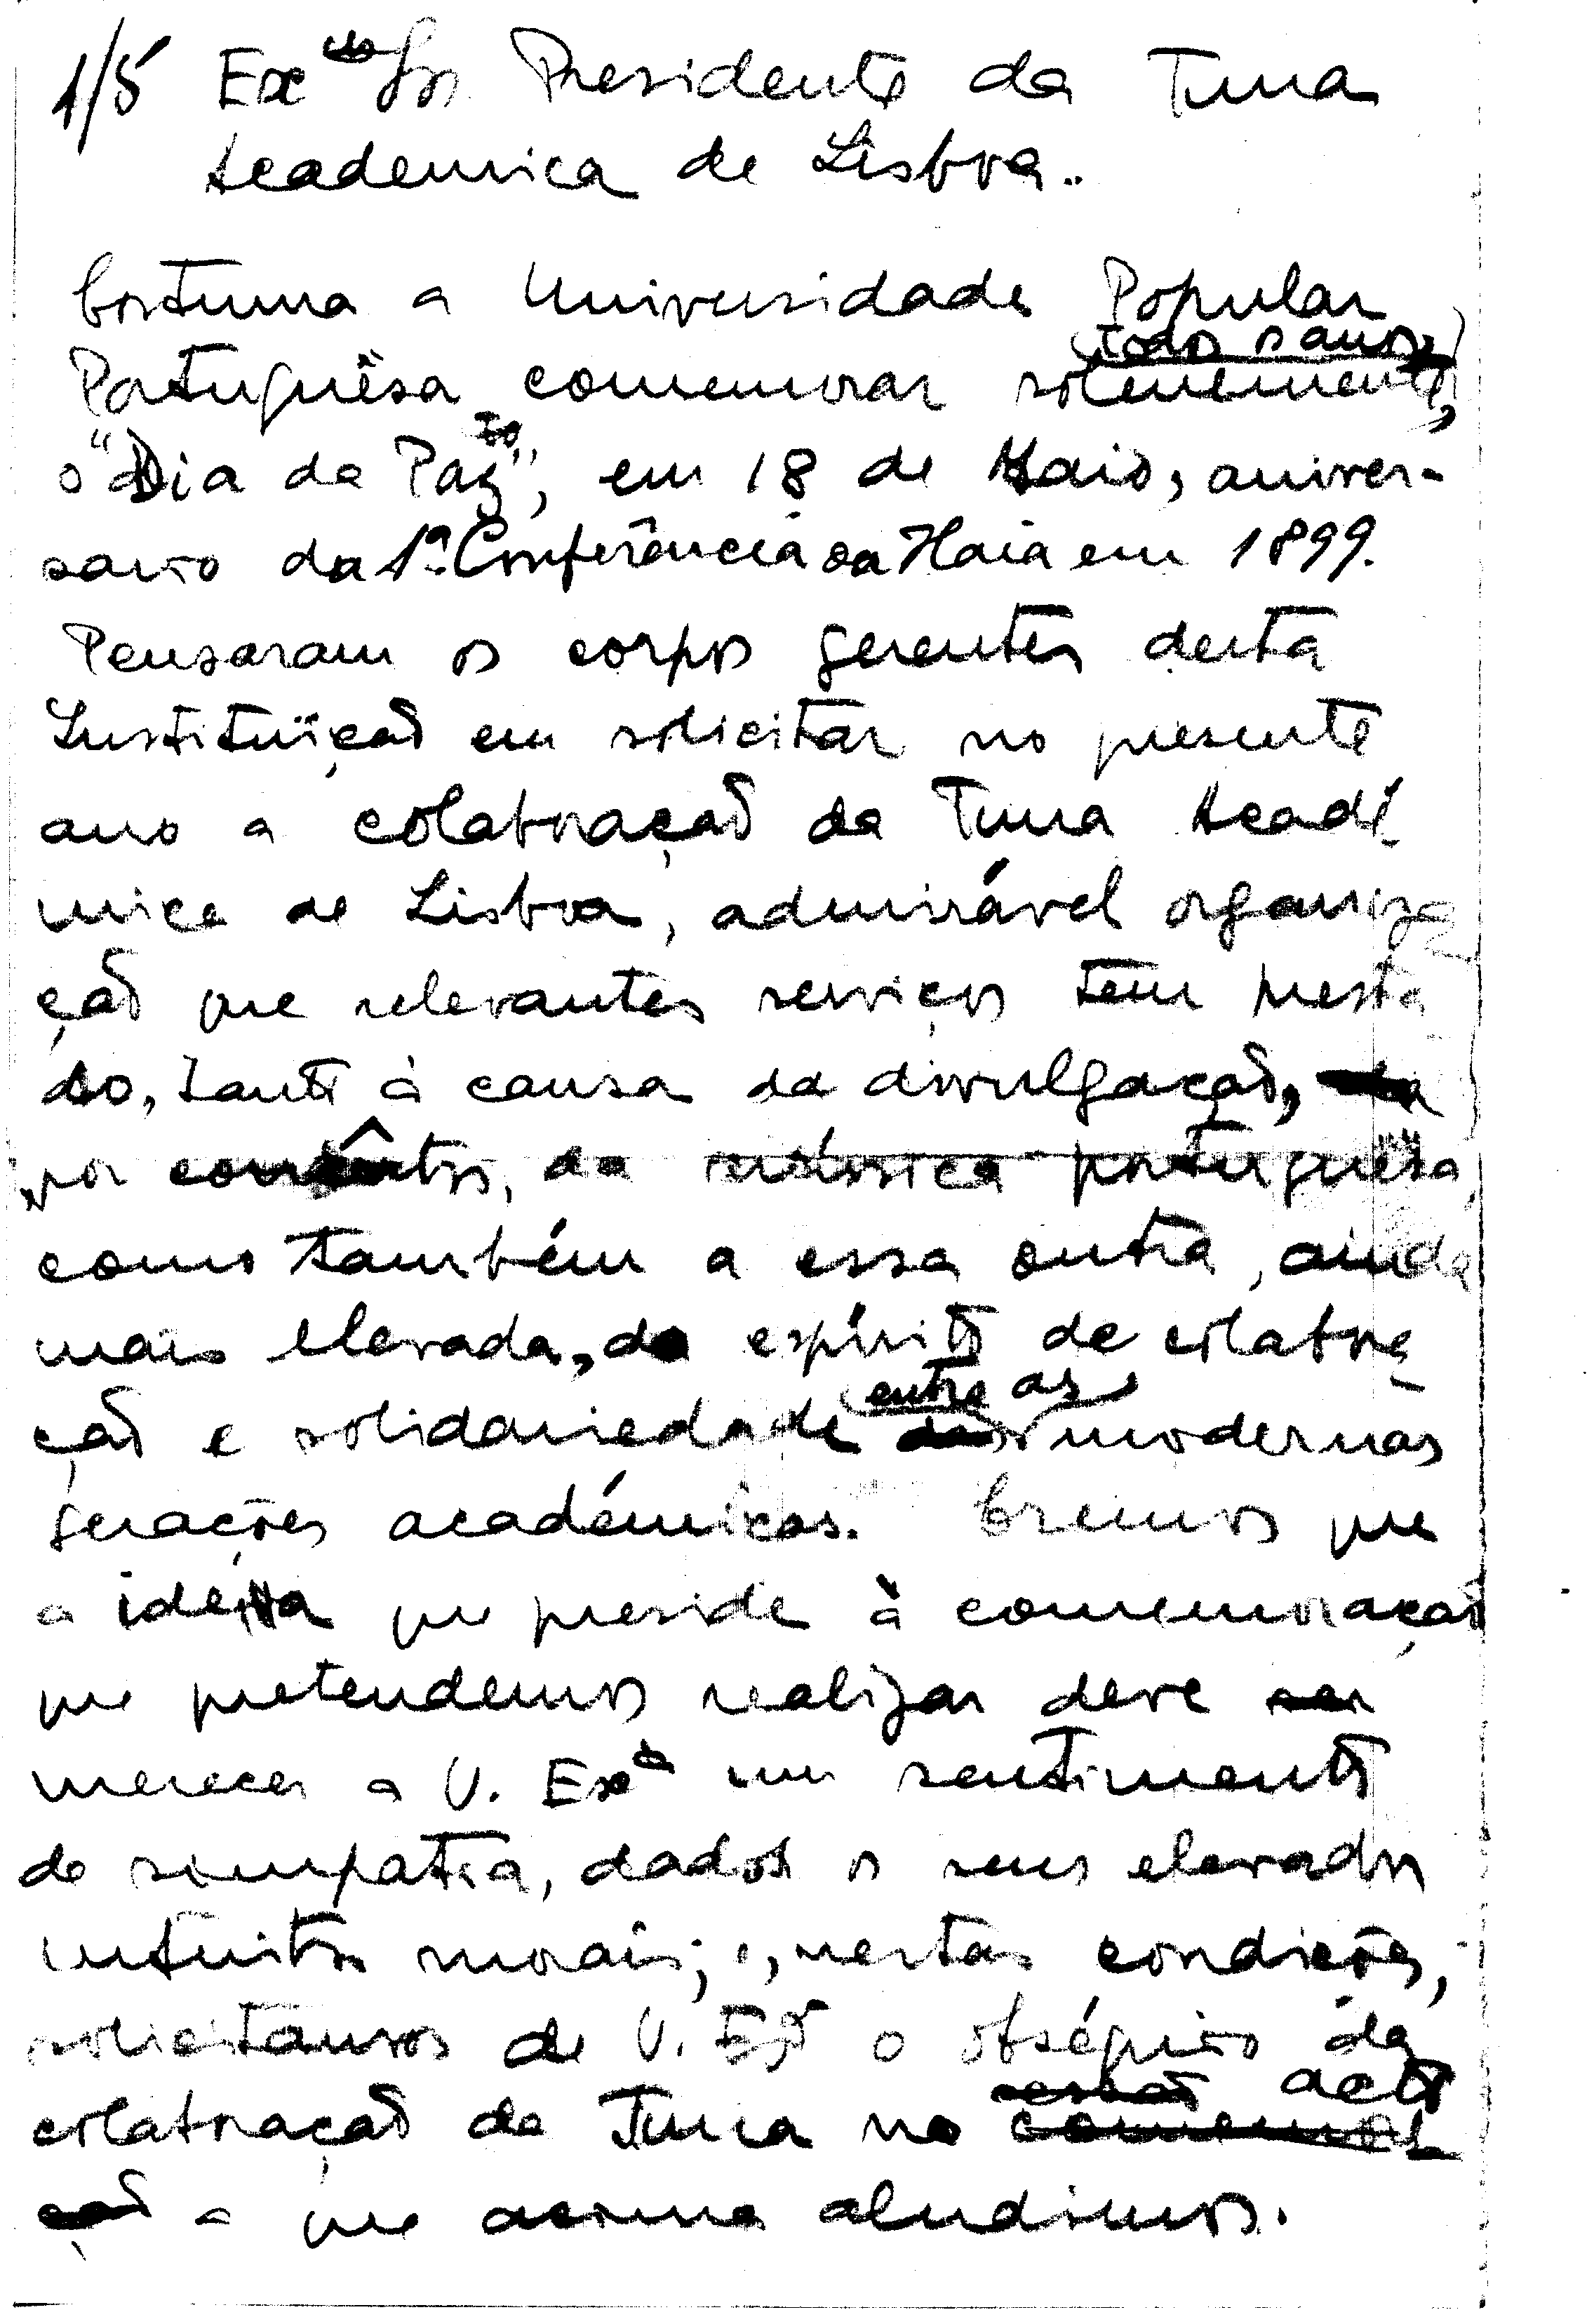 1/5 Exmo Sr. Presidente da Tuna
Academica de Lisboa.
Costuma a Universidade Popular
todos os anos,
Portuguêsa comemorar solenemente,
o "Dia da Paz", em 18 de Maio, aniver-
sario da 1ª Conferência da Haia em 1899.
Pensaram os corpos gerentes desta
Instituïção em solicitar no presente
ano a colaboração da Tuna Acadé-
mica de Lisboa, admirável organiza
ção que relevantes serviços tem presta
do, tanto à causa da divulgação,
por concêrtos, da música portuguêsa,
como também a essa outra, ainda
mais elevada, do espírito de colabora-
entre as
ção e solidariedade modernas
gerações académicas. Cremos que
a ideia que preside à comemoração
que pretendemos realizar deve ser
merecer a V. Exª um sentimento
de simpatia, dados os seus elevados
intuitos morais; e, nestas condições,
solicitamos de V. Exª o obséquio da
sessão acto
colaboração da Tuna no comemora-
ção a que acima aludimos.